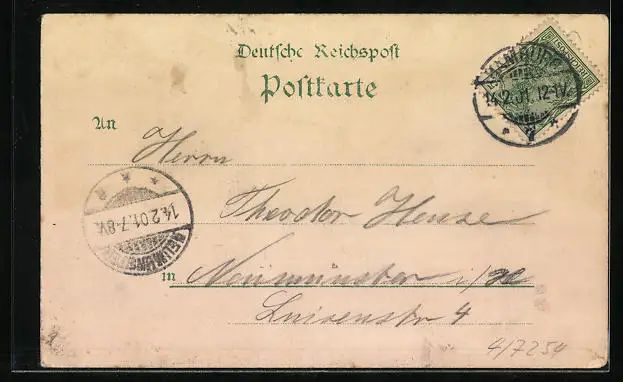 Deutsche Reichspost
Postkarte
HAMBURG
14.2.01.12-1V.
An
Herrn
14.2.01.7-8V.
NEUMÜNSTER
Theodor Hense
in Neumünster i/H
Luisenstr 4
4/7254